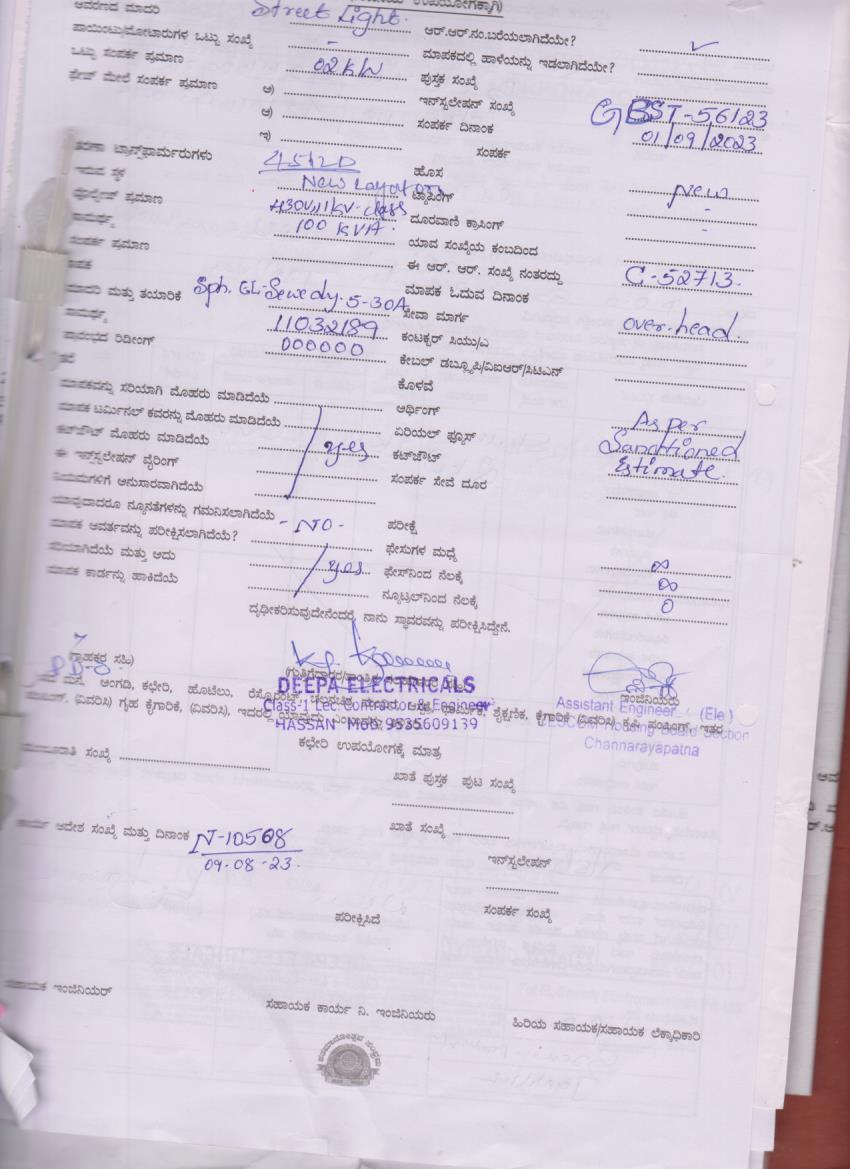 ಆವರಣದ ಮಾದರಿ Street Light. ಆರ್.ಆರ್.ನಂ.ಬರೆಯಲಾಗಿದೆಯೇ? ✓
ಪಾಯಿಂಟು/ಮೋಟಾರುಗಳ ಒಟ್ಟು ಸಂಖ್ಯೆ - ಮಾಪಕದಲ್ಲಿ ಹಾಳೆಯನ್ನು ಇಡಲಾಗಿದೆಯೇ?
ಒಟ್ಟು ಸಂಪರ್ಕ ಪ್ರಮಾಣ 02 KW ಪುಸ್ತಕ ಸಂಖ್ಯೆ
ಫೇಸ್ ಮೇಲೆ ಸಂಪರ್ಕ ಪ್ರಮಾಣ ಅ) ಇನ್‌ಸ್ಟಲೇಷನ್ ಸಂಖ್ಯೆ GBST-56123
ಆ) ಸಂಪರ್ಕ ದಿನಾಂಕ 01/09/2023
ಇ) ಸಂಪರ್ಕ
ಟ್ರಾನ್ಸ್‌ಫಾರ್ಮರುಗಳು ಹೊಸ New
ಇರುವ ಸ್ಥಳ New Layout ಟ್ಯಾಪಿಂಗ್ -
ವೋಲ್ಟೇಜ್ ಪ್ರಮಾಣ class ದೂರವಾಣಿ ಕ್ರಾಸಿಂಗ್ -
ಸಾಮರ್ಥ್ಯ 100 KVA. ಯಾವ ಸಂಖ್ಯೆಯ ಕಂಬದಿಂದ
ಸಂಪರ್ಕ ಪ್ರಮಾಣ ಈ ಆರ್. ಆರ್. ಸಂಖ್ಯೆ ನಂತರದ್ದು G-52713.
ಮಾಪಕ ಓದುವ ದಿನಾಂಕ
ಮಾದರಿ ಮತ್ತು ತಯಾರಿಕೆ Sph. 5-30A ಸೇವಾ ಮಾರ್ಗ over-head.
ಸಾಮರ್ಥ್ಯ 11032189 ಕಂಟಕ್ಟರ್ ಸಿಯು/ಎ
ಪ್ರಾರಂಭದ ರಿಡೀಂಗ್ 000000 ಕೇಬಲ್ ಡಬ್ಲ್ಯೂಪಿ/ವಿಐಆರ್/ಸಿಟಿಎಸ್
ಕೊಳವೆ
ಮಾಪಕವನ್ನು ಸರಿಯಾಗಿ ಮೊಹರು ಮಾಡಿದೆಯೆ ಆರ್ಥಿಂಗ್ As per
ಮಾಪಕ ಟರ್ಮಿನಲ್ ಕವರನ್ನು ಮೊಹರು ಮಾಡಿದೆಯೆ ಏರಿಯಲ್ ಫ್ಯೂಸ್ Sanctioned
ಕಟ್‌ಔಟ್ ಮೊಹರು ಮಾಡಿದೆಯೆ yes ಕಟ್‌ಔಟ್ Estimate.
ಈ ಇನ್‌ಸ್ಟಲೇಷನ್ ವೈರಿಂಗ್ ಸಂಪರ್ಕ ಸೇವೆ ದೂರ
ನಿಯಮಗಳಿಗೆ ಅನುಸಾರವಾಗಿದೆಯೆ
ಯಾವುದಾದರೂ ನ್ಯೂನತೆಗಳನ್ನು ಗಮನಿಸಲಾಗಿದೆಯೆ - NO - ಪರೀಕ್ಷೆ
ಮಾಪಕ ಆವರ್ತವನ್ನು ಪರೀಕ್ಷಿಸಲಾಗಿದೆಯೆ? ಫೇಸುಗಳ ಮಧ್ಯೆ ∞
ಸರಿಯಾಗಿದೆಯೆ ಮತ್ತು ಅದು yes ಫೇಸ್‌ನಿಂದ ನೆಲಕ್ಕೆ ∞
ಮಾಪಕ ಕಾರ್ಡನ್ನು ಹಾಕಿದೆಯೆ ನ್ಯೂಟ್ರಲ್‌ನಿಂದ ನೆಲಕ್ಕೆ 0
ದೃಢೀಕರಿಸುವುದೇನೆಂದರೆ ನಾನು ಸ್ಥಾವರವನ್ನು ಪರೀಕ್ಷಿಸಿದ್ದೇನೆ.
(ಗ್ರಾಹಕರ ಸಹಿ)
ಇಂಜಿನಿಯರು
DEEPA ELECTRICALS
Class-1 Lec. Contractor & Engineer
HASSAN Mob:9535609139
Assistant Engineer (Ele)
Housing Board Section
Channarayapatna
ಮನೆ, ಅಂಗಡಿ, ಕಛೇರಿ, ಹೊಟೇಲು, ಶೈಕ್ಷಣಿಕ, ಕೈಗಾರಿಕೆ (ವಿವರಿಸಿ) ಕೃಷಿ ಪಂಪಿಂಗ್, ಇತರ
(ವಿವರಿಸಿ) ಗೃಹ ಕೈಗಾರಿಕೆ, (ವಿವರಿಸಿ), ಇದರಲ್ಲಿ
ಕಛೇರಿ ಉಪಯೋಗಕ್ಕೆ ಮಾತ್ರ
ಸಂಖ್ಯೆ ಖಾತೆ ಪುಸ್ತಕ ಪುಟ ಸಂಖ್ಯೆ
ಆದೇಶ ಸಂಖ್ಯೆ ಮತ್ತು ದಿನಾಂಕ N-10568 ಖಾತೆ ಸಂಖ್ಯೆ
09-08-23. ಇನ್‌ಸ್ಟಲೇಷನ್
ಪರೀಕ್ಷಿಸಿದೆ ಸಂಪರ್ಕ ಸಂಖ್ಯೆ
ಸಹಾಯಕ ಇಂಜಿನಿಯರ್ ಸಹಾಯಕ ಕಾರ್ಯ ನಿ. ಇಂಜಿನಿಯರು ಹಿರಿಯ ಸಹಾಯಕ/ಸಹಾಯಕ ಲೆಕ್ಕಾಧಿಕಾರಿ